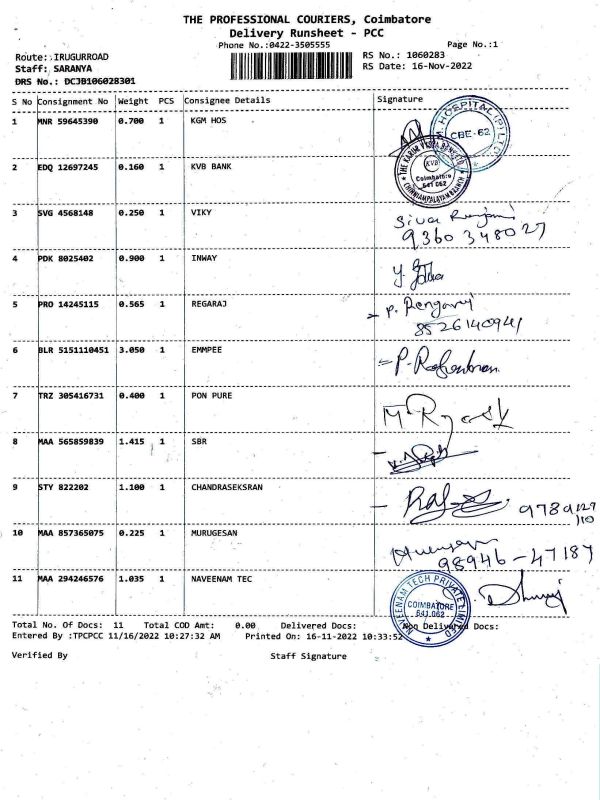 THE PROFESSIONAL COURIERS, Coimbatore
Delivery Runsheet - PCC
Phone No.:0422-3505555 Page No.:1
Route: IRUGURROAD RS No.: 1060283
Staff: SARANYA RS Date: 16-Nov-2022
DRS No.: DCJB106028301
S No Consignment No Weight PCS Consignee Details Signature
1 MNR 59645390 0.700 1 KGM HOS
HOSPITAL (P) LTD
CBE-62
2 EDQ 12697245 0.160 1 KVB BANK
THE KARUR VYSYA BANK LTD
KVB
Coimbatore
641 062
CHINNIAMPALAYAM BRANCH
3 SVG 4568148 0.250 1 VIKY
Siva Ranjani
9360 348027
4 PDK 8025402 0.900 1 INWAY
5 PRO 14245115 0.565 1 REGARAJ
P. Rengaraj
8526140941
6 BLR 5151110451 3.050 1 EMMPEE
7 TRZ 305416731 0.400 1 PON PURE
8 MAA 565859839 1.415 1 SBR
9 STY 822202 1.100 1 CHANDRASEKSRAN
9789127
110
10 MAA 857365075 0.225 1 MURUGESAN
98946-47187
11 MAA 294246576 1.035 1 NAVEENAM TEC
NAVEENAM TECH PRIVATE LIMITED
COIMBATORE
641 062
Total No. Of Docs: 11 Total COD Amt: 0.00 Delivered Docs: Non Delivered Docs:
Entered By :TPCPCC 11/16/2022 10:27:32 AM Printed On: 16-11-2022 10:33:52
Verified By Staff Signature